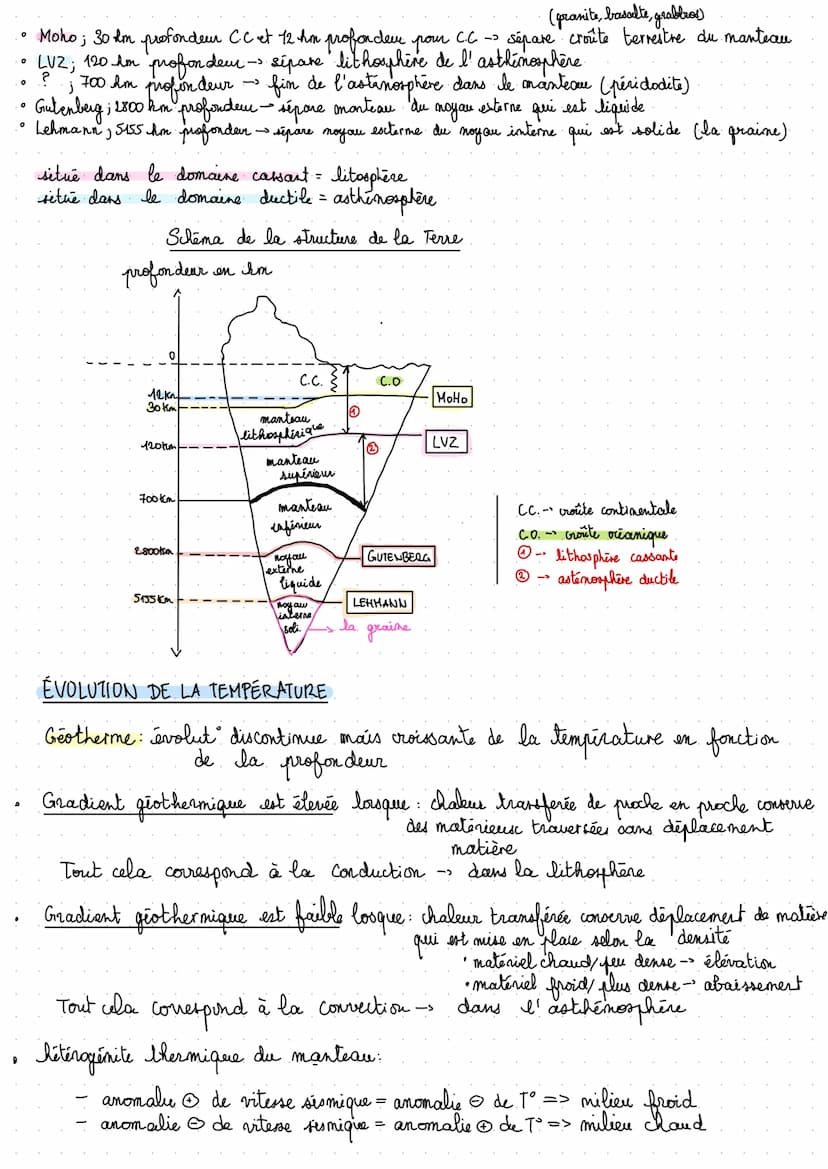 (granite, basalte, grabbros)
• Moho ; 30 km profondeur CC et 12 km profondeur pour C.C → sépare croûte terrestre du manteau
• LVZ ; 120 km profondeur → sépare lithosphère de l'asthénosphère
• ? ; 700 km profondeur → fin de l'asténosphère dans le manteau (péridodite)
• Gutenberg ; 2800 km profondeur → sépare manteau du noyau externe qui est liquide
• Lehmann ; 5155 km profondeur → sépare noyau externe du noyau interne qui est solide (la graine)
situé dans le domaine cassant = litosphère
situé dans le domaine ductile = asthénosphère
Schéma de la structure de la Terre
profondeur en km
0
C.C.
C.O
12 Km
30 Km
MOHO
①
manteau
lithosphérique
120 km
LVZ
②
manteau
supérieur
700 Km
manteau
inférieur
2800 km
GUTENBERG
noyau
externe
liquide
5155 Km
LEHMANN
noyau
interne
soli.
→ la graine
C.C. → croûte continentale
C.O. → croûte océanique
① → lithosphère cassante
② → asténosphère ductile
ÉVOLUTION DE LA TEMPÉRATURE
Géotherme : évolut° discontinue mais croissante de la température en fonction
de la profondeur
• Gradient géothermique est élevée lorsque : chaleur transferée de proche en proche conserve
des matérieux traversées sans déplacement
matière
Tout cela correspond à la conduction → dans la lithosphère
• Gradient géothermique est faible losque : chaleur transférée conserve déplacement de matière
qui est mise en place selon la densité
• matériel chaud/peu dense → élévation
• matériel froid/plus dense → abaissement
Tout cela correspond à la convection → dans l'asthénosphère
• hétérogénite thermique du manteau :
- anomalie ⊕ de vitesse sismique = anomalie ⊖ de T° => milieu froid
- anomalie ⊖ de vitesse sismique = anomalie ⊕ de T° => milieu chaud